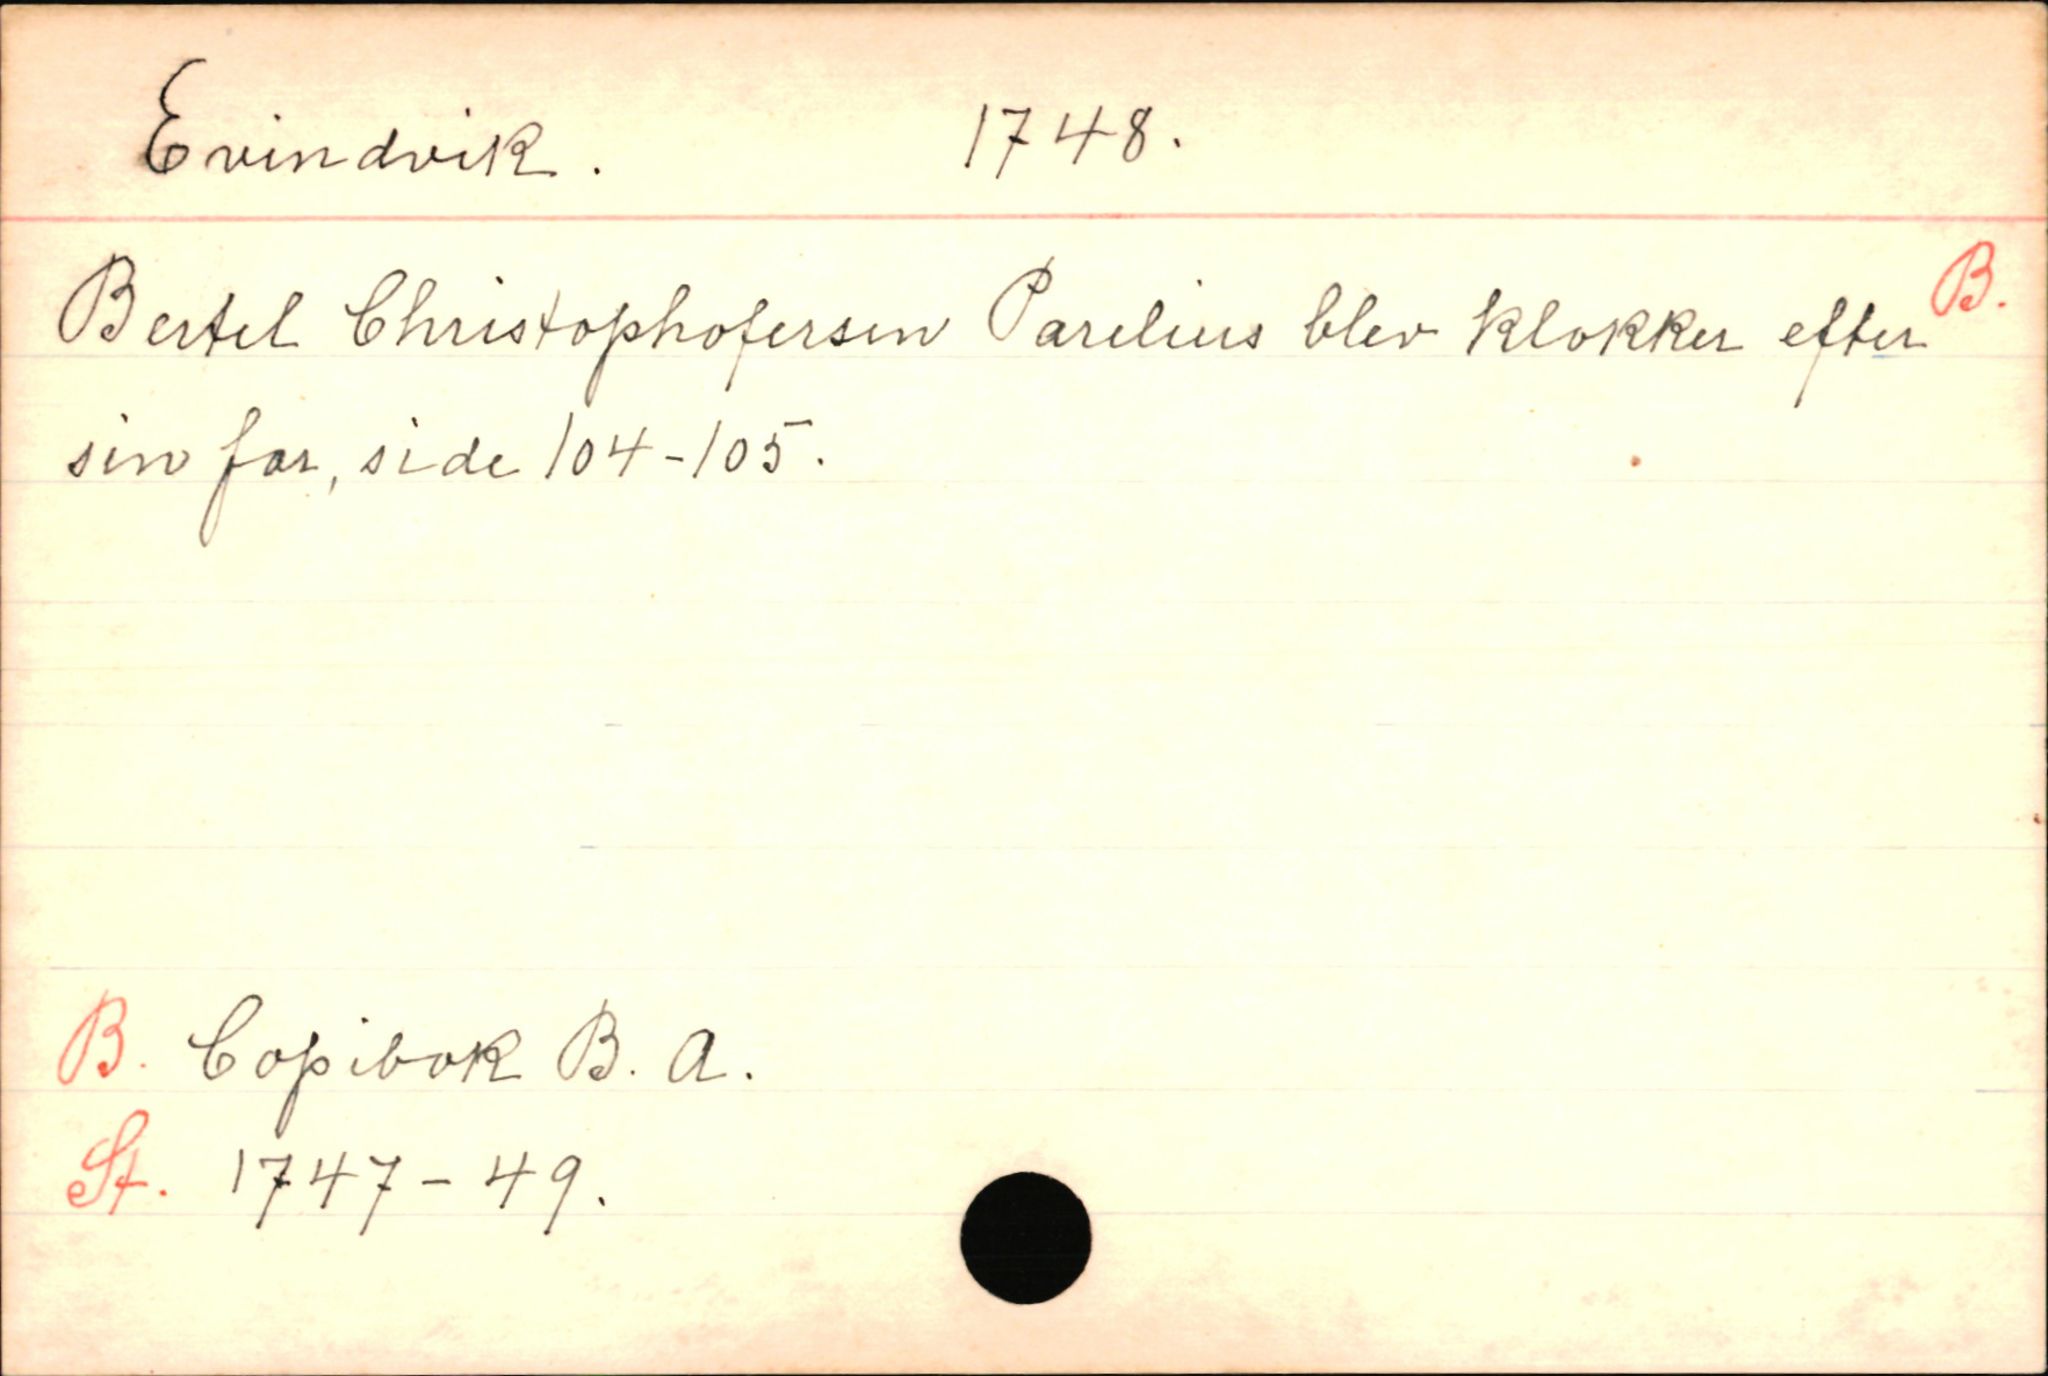 Evindvik. 1748.
Bertel Christophofersen Parelius blev klokker efter B.
sin far, side 104-105.
B. Copibok B. A.
St. 1747-49.